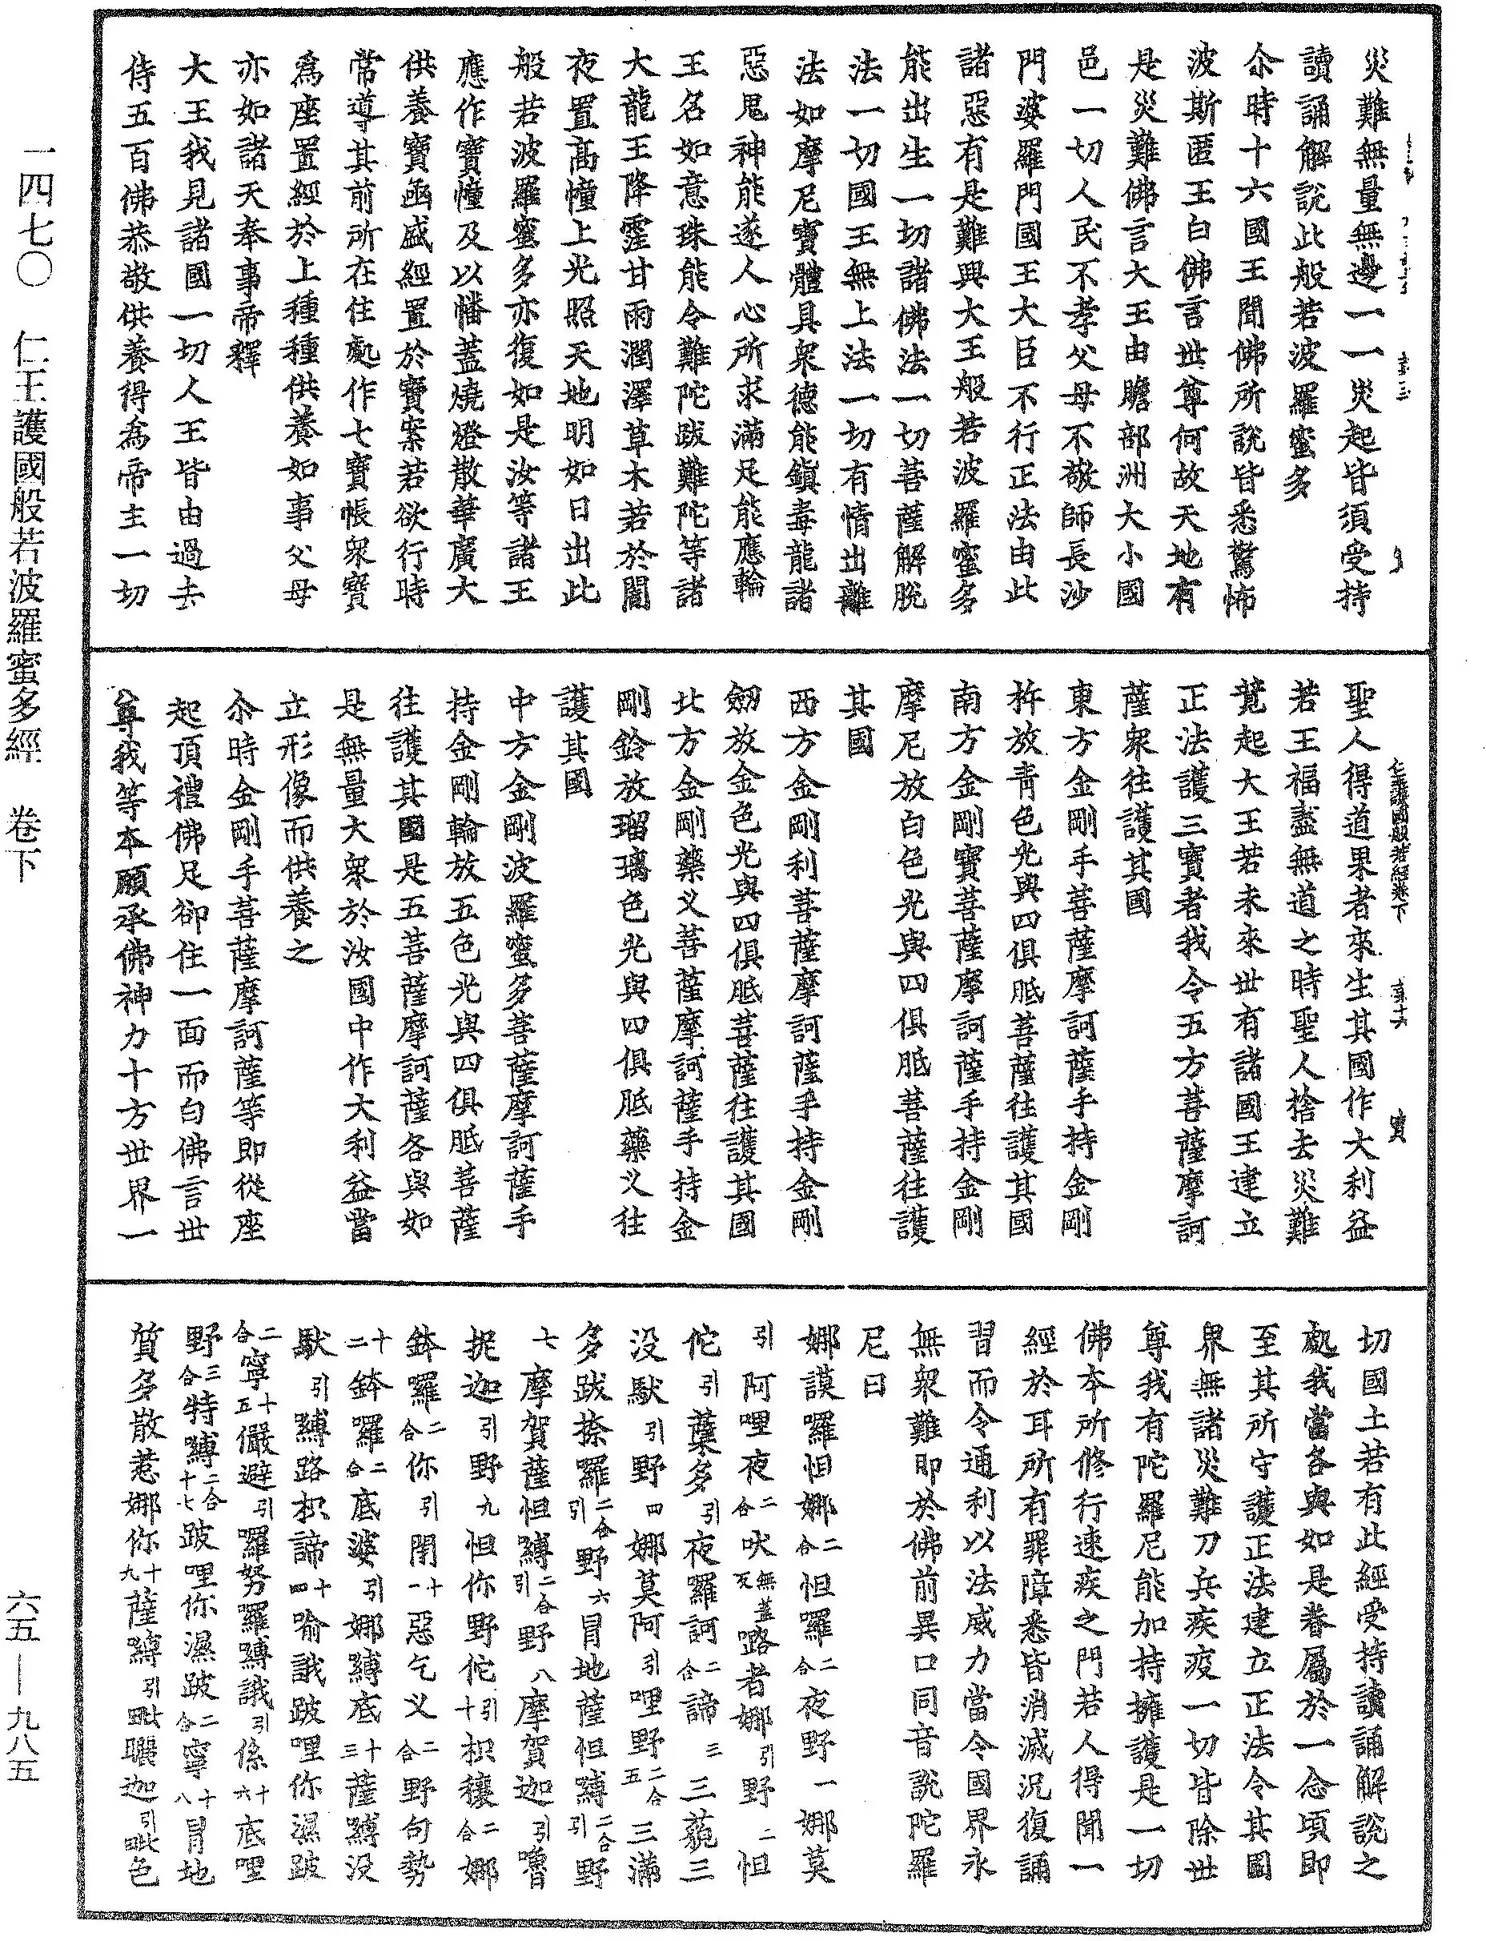 災難無量無邊一一災起皆須受持
讀誦解説此般若波羅蜜多
尒時十六國王聞佛所説皆悉驚怖
波斯匿王白佛言世尊何故天地有
是災難佛言大王由贍部洲大小國
邑一切人民不孝父母不敬師長沙
門婆羅門國王大臣不行正法由此
諸惡有是難興大王般若波羅蜜多
能出生一切諸佛法一切菩薩解脱
法一切國王無上法一切有情出離
法如摩尼寶體具衆德能鎮毒龍諸
惡鬼神能遂人心所求滿足能應輪
王名如意珠能令難陀跋難陀等諸
大龍王降霔甘雨潤澤草木若於闇
夜置髙幢上光照天地明如日出此
般若波羅蜜多亦復如是汝等諸王
應作寶幢及以幡蓋燒燈散華廣大
供養寶函盛經置於寶案若欲行時
常導其前所在住處作七寶帳衆寶
爲座置經於上種種供養如事父母
亦如諸天奉事帝釋
大王我見諸國一切人王皆由過去
侍五百佛恭敬供養得爲帝主一切
仁王護國般若經卷下
聖人得道果者來生其國作大利益
若王福盡無道之時聖人捨去災難
竟起大王若未來世有諸國王建立
正法護三寶者我令五方菩薩摩訶
薩衆往護其國
東方金剛手菩薩摩訶薩手持金剛
杵放青色光與四俱胝菩薩往護其國
南方金剛寶菩薩摩訶薩手持金剛
摩尼放白色光與四俱胝菩薩往護
其國
西方金剛利菩薩摩訶薩手持金剛
劒放金色光與四俱胝菩薩往護其國
北方金剛藥叉菩薩摩訶薩手持金
剛鈴放瑠璃色光與四俱胝藥叉往
護其國
中方金剛波羅蜜多菩薩摩訶薩手
持金剛輪放五色光與四俱胝菩薩
往護其國是五菩薩摩訶薩各與如
是無量大衆於汝國中作大利益當
立形像而供養之
尒時金剛手菩薩摩訶薩等即從座
起頂禮佛足卻住一面而白佛言世
尊我等本願承佛神力十方世界一
切國土若有此經受持讀誦解説之
處我當各與如是眷屬於一念頃即
至其所守護正法建立正法令其國
界無諸災難刀兵疾疫一切皆除世
尊我有陀羅尼能加持擁護是一切
佛本所修行速疾之門若人得聞一
經於耳所有罪障悉皆消滅況復誦
習而令通利以法威力當令國界永
無衆難即於佛前異口同音説陀羅
尼曰
娜謨囉怛娜二合怛羅二合夜野一娜莫
引阿哩夜二合吠無蓋反嚕者娜引野二怛
佗引蘗多引夜羅訶二合諦三三藐三
没馱引野四娜莫阿引哩野二合五三滿
多跋捺羅二合引野六冒地薩怛縛二合引野
七摩賀薩怛縛二合引野八摩賀迦引嚕
抳迦引野九怛你野佗引十枳穰二合娜
鉢囉二合你引閉十一惡乞叉二合野句勢
十二鉢囉二合底婆引娜縛底十三薩縛没
馱引縛路枳諦十四喻誐跛哩你濕跛
二合寧十五儼避引羅努羅縛誐引係十六底哩
野三合特縛二合十七跛哩你濕跛二合寧十八冒地
質多散惹娜你十九薩縛引毗曬迦引毗色
一四七〇　仁王護國般若波羅蜜多經　卷下　六五—九八五